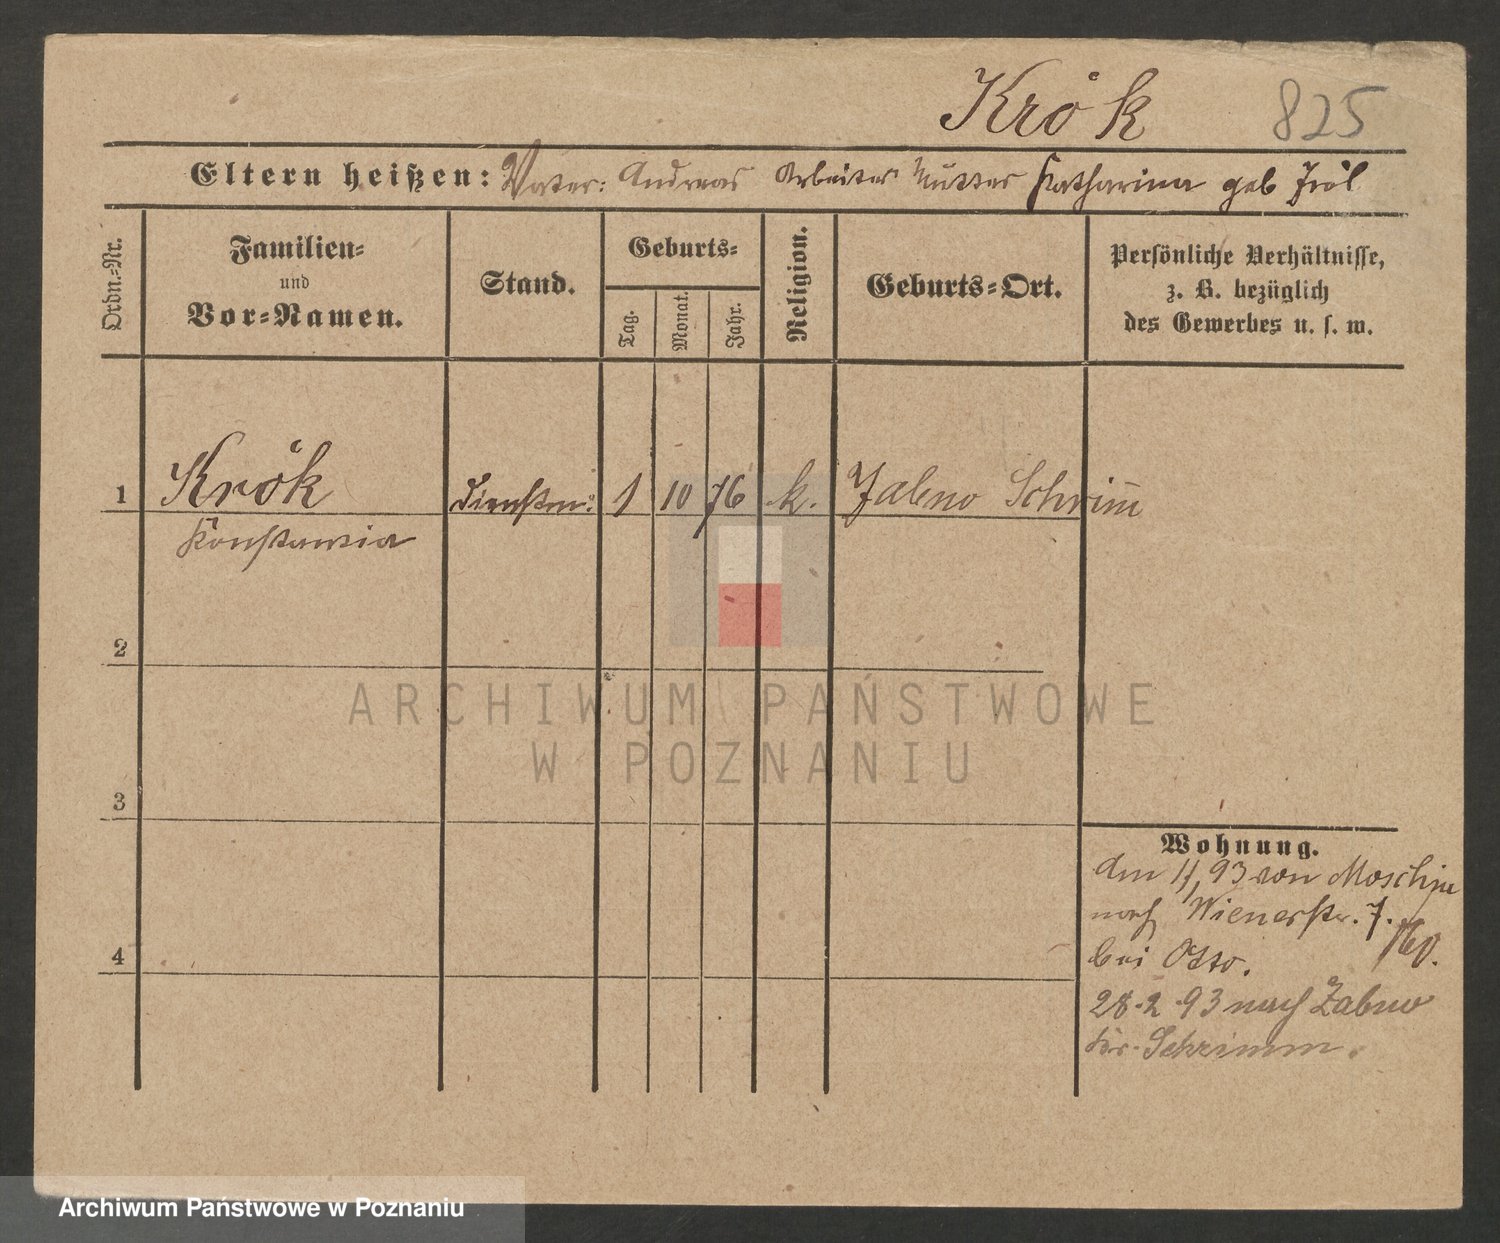 Krók 825
Eltern heißen: Vater: Andreas Arbeiter Mutter Katharina geb Król
Ordn.=Nr.
Familien=
und
Vor=Namen.
Stand.
Geburts=
Tag.
Monat.
Jahr.
Religion.
Geburts=Ort.
Persönliche Verhältnisse,
z. B. bezüglich
des Gewerbes u. s. w.
1 Krók 1 10 76 k. Zabno Schrim̄
Konstancia
2
ARCHIWUM PAŃSTWOWE
W POZNANIU
3
Wohnung.
den 93 von Moschin
nach Wienerstr. 7.
bei Otto.
4
28.2.93 nach Zabno
Kr. Schrimm.
Archiwum Państwowe w Poznaniu